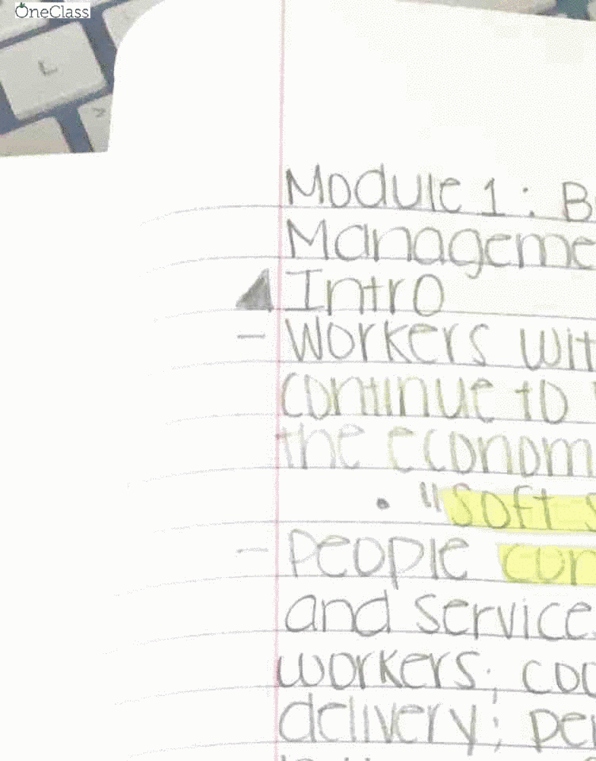 OneClass
L
Module 1: B
Manageme
Intro
- Workers wit
continue to
the econom
• "Soft s
- People con
and service
workers; coo
delivery; per